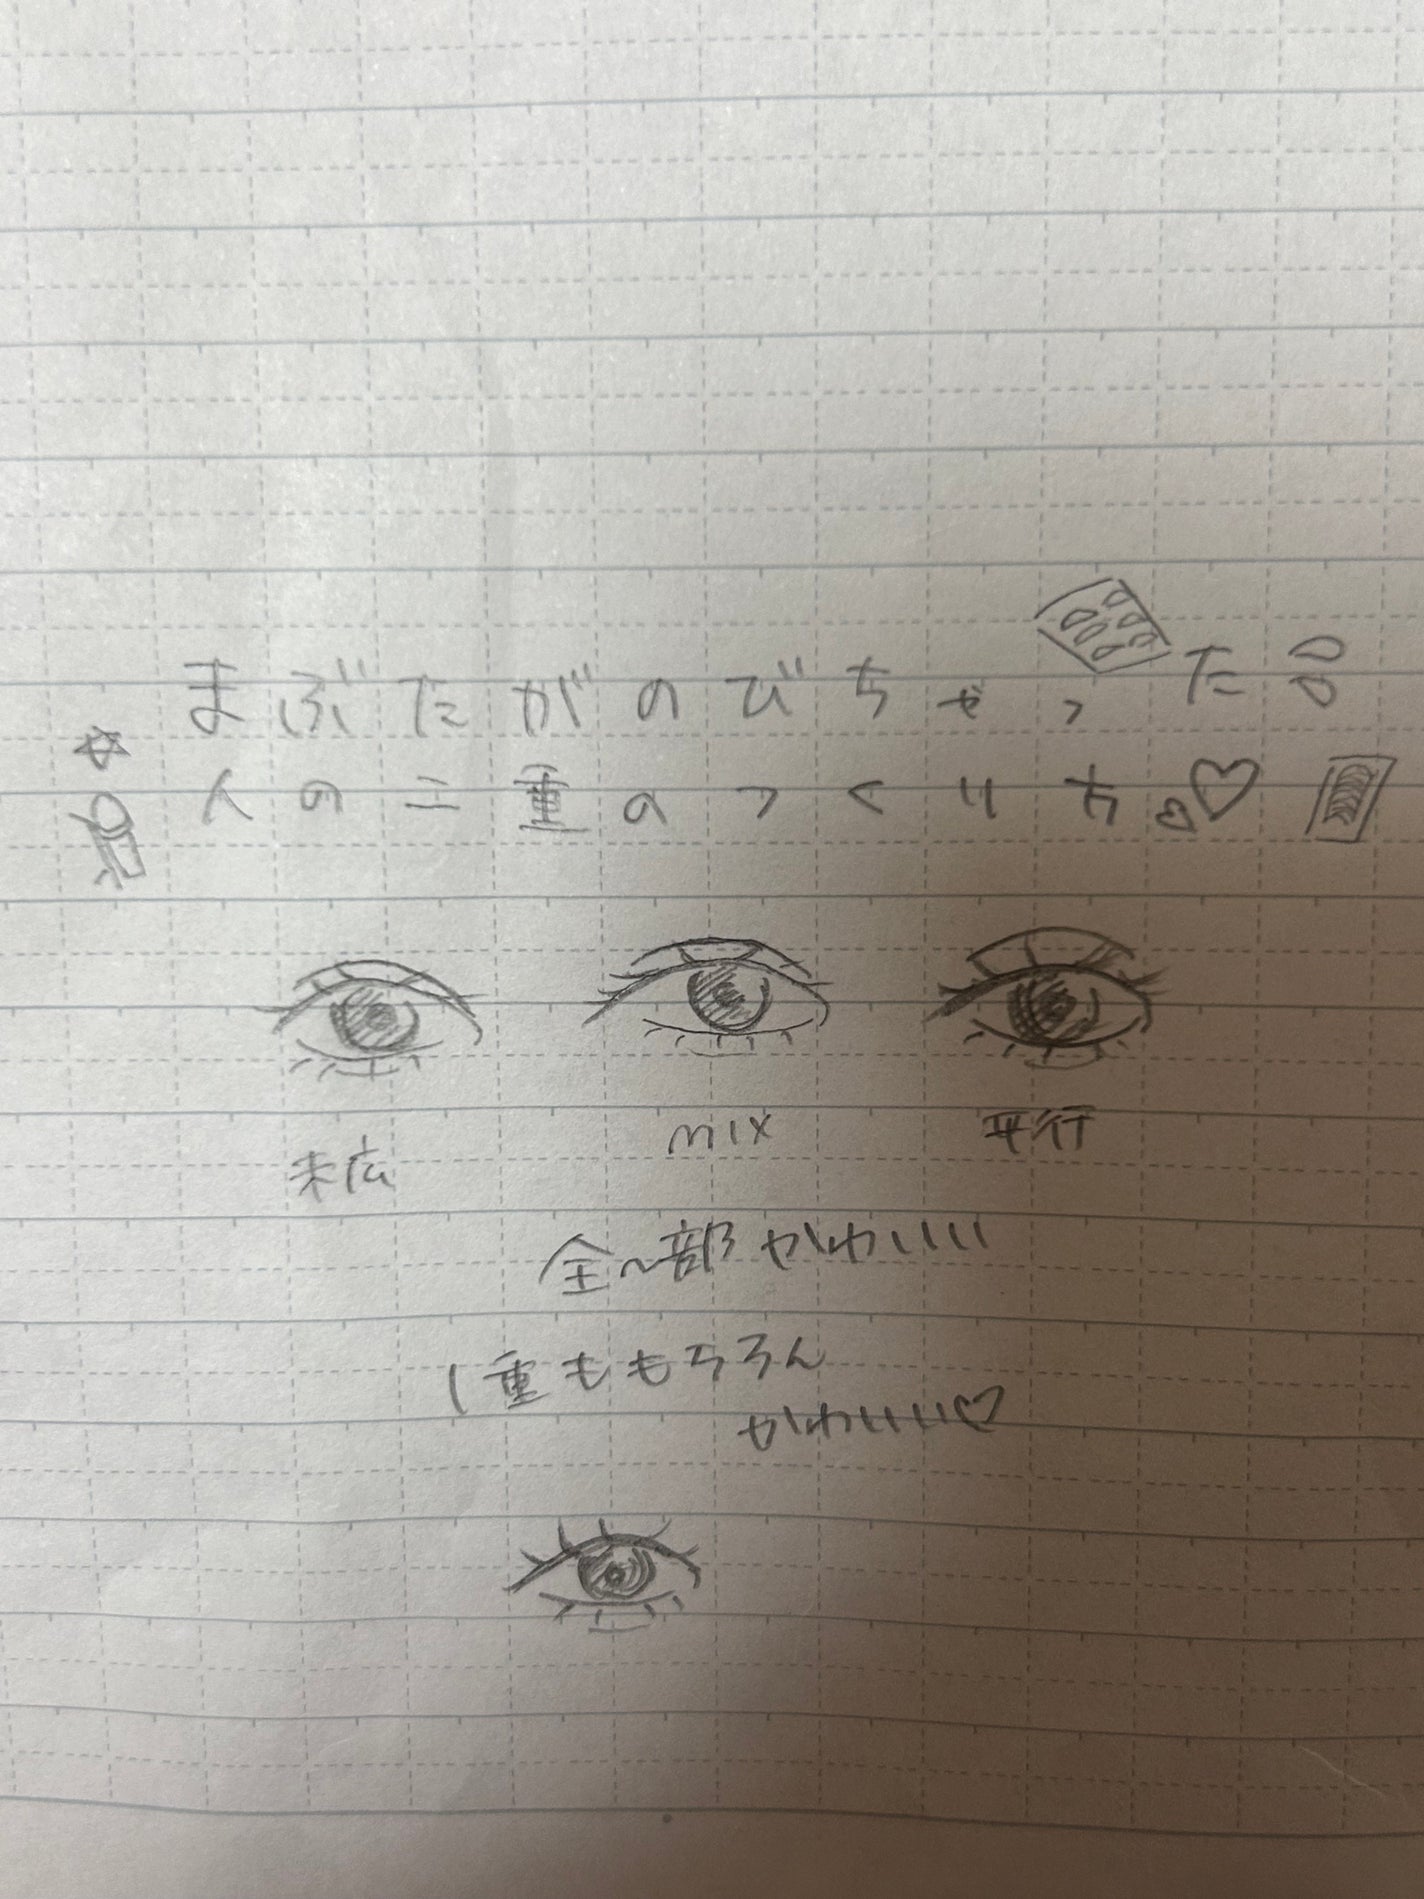 まぶたがのびちゃった
人の二重のつくり方♡
末広
mix
平行
全〜部かわいい
1重ももちろん
かわいいい♡